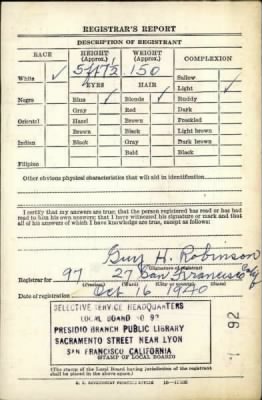 REGISTRAR'S REPORT
DESCRIPTION OF REGISTRANT
RACE HEIGHT (Approx.) WEIGHT (Approx.) COMPLEXION
White ✓ 5 ft 7½ 150 Sallow
EYES HAIR Light ✓
Negro Blue ✓ Blonde ✓ Ruddy
Gray Red Dark
Oriental Hazel Brown Freckled
Brown Black Light brown
Indian Black Gray Dark brown
Bald Black
Filipino
Other obvious physical characteristics that will aid in identification
I certify that my answers are true; that the person registered has read or has had
read to him his own answers; that I have witnessed his signature or mark and that
all of his answers of which I have knowledge are true, except as follows:
Guy H. Robinson
(Signature of registrar)
Registrar for 97 27 San Francisco
(Precinct) (Ward) (City or county)
Date of registration Oct 16 1940
SELECTIVE SERVICE HEADQUARTERS
LOCAL BOARD NO 92
PRESIDIO BRANCH PUBLIC LIBRARY
SACRAMENTO STREET NEAR LYON
SAN FRANCISCO CALIFORNIA
(STAMP OF LOCAL BOARD)
(The stamp of the Local Board having jurisdiction of the registrant
shall be placed in the above space.)
U. S. GOVERNMENT PRINTING OFFICE
92